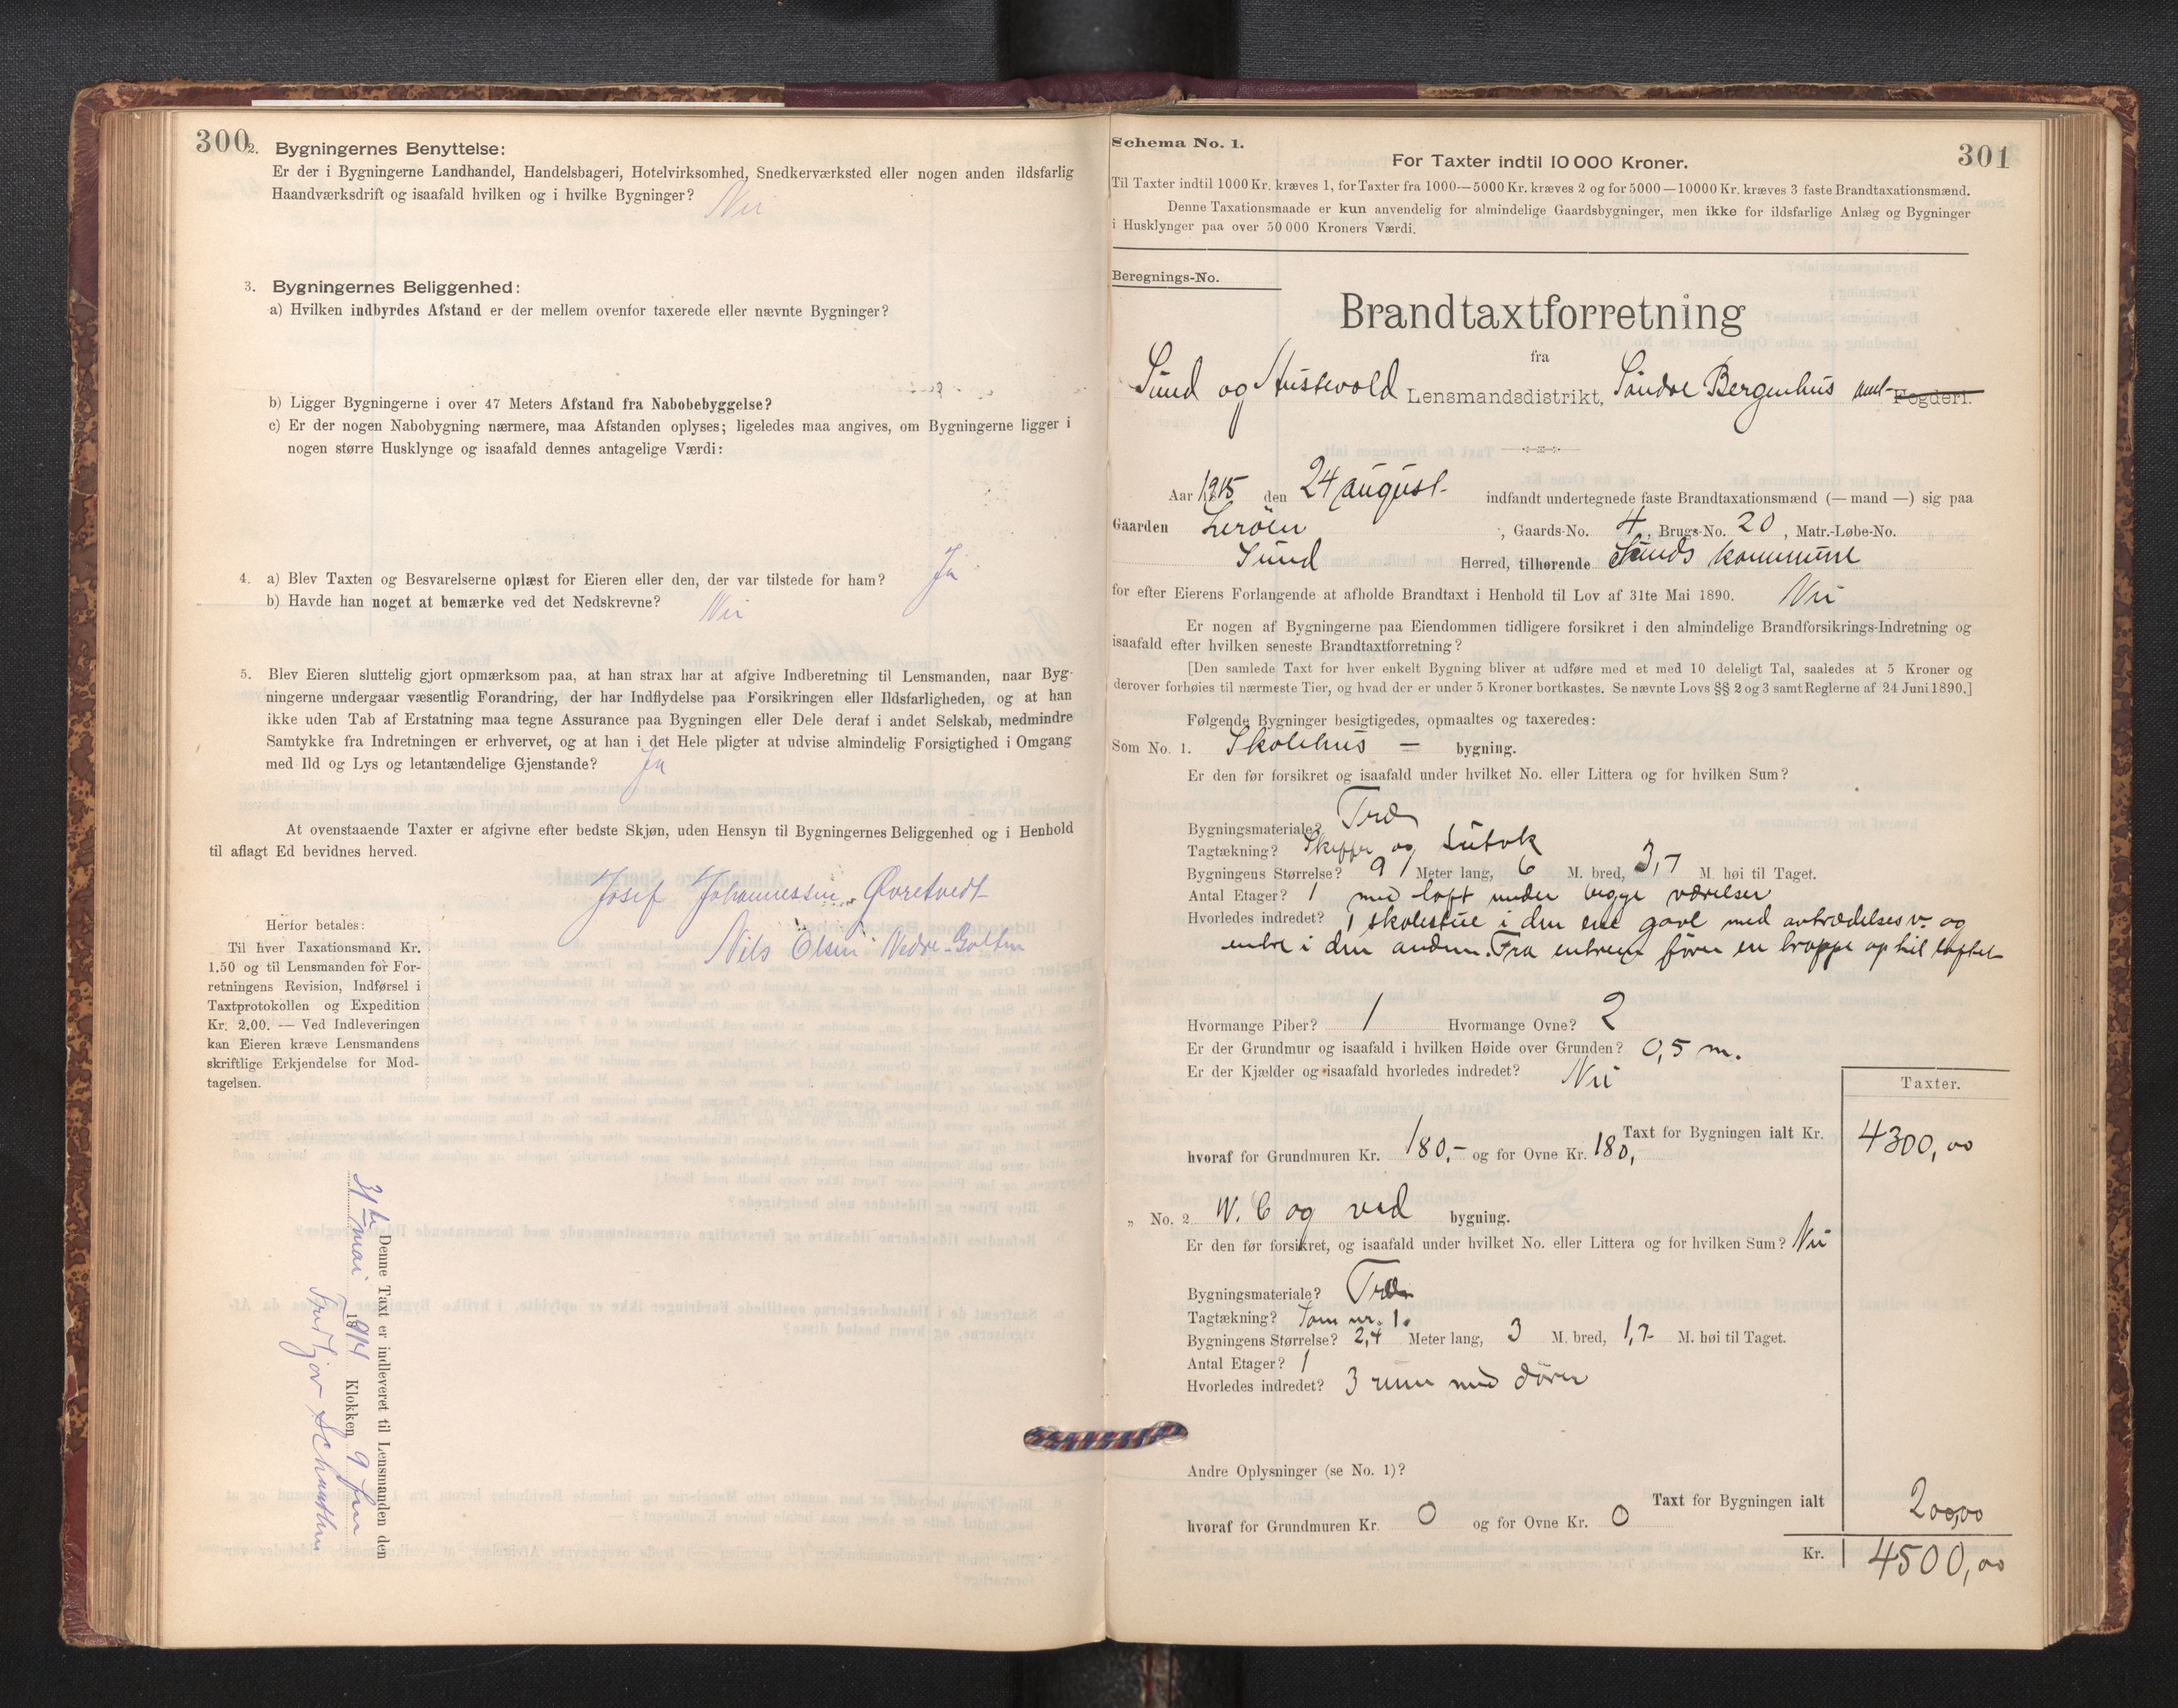 300
2. Bygningernes Benyttelse:
Er der i Bygningerne Landhandel, Handelsbageri, Hotelvirksomhed, Snedkerværksted eller nogen anden ildsfarlig
Haandværksdrift og isaafald hvilken og i hvilke Bygninger? Nei
3. Bygningernes Beliggenhed:
a) Hvilken indbyrdes Afstand er der mellem ovenfor taxerede eller nævnte Bygninger?
b) Ligger Bygningerne i over 47 Meters Afstand fra Nabobebyggelse?
c) Er der nogen Nabobygning nærmere, maa Afstanden oplyses; ligeledes maa angives, om Bygningerne ligger i
nogen større Husklynge og isaafald dennes antagelige Værdi:
4. a) Blev Taxten og Besvarelserne oplæst for Eieren eller den, der var tilstede for ham? Ja
b) Havde han noget at bemærke ved det Nedskrevne? Nei
5. Blev Eieren sluttelig gjort opmærksom paa, at han strax har at afgive Indberetning til Lensmanden, naar Byg-
ningerne undergaar væsentlig Forandring, der har Indflydelse paa Forsikringen eller Ildsfarligheden, og at han
ikke uden Tab af Erstatning maa tegne Assurance paa Bygningen eller Dele deraf i andet Selskab, medmindre
Samtykke fra Indretningen er erhvervet, og at han i det Hele pligter at udvise almindelig Forsigtighed i Omgang
med Ild og Lys og letantændelige Gjenstande? Ja
At ovenstaaende Taxter er afgivne efter bedste Skjøn, uden Hensyn til Bygningernes Beliggenhed og i Henhold
til aflagt Ed bevidnes herved.
Josef Johannessen Øvretvedt
Nils Olsen Nedre-Golten
Herfor betales:
Til hver Taxationsmand Kr.
1.50 og til Lensmanden for For-
retningens Revision, Indførsel i
Taxtprotokollen og Expedition
Kr. 2.00. — Ved Indleveringen
kan Eieren kræve Lensmandens
skriftlige Erkjendelse for Mod-
tagelsen.
Denne Taxt er indleveret til Lensmanden den
31te mai 1914 Klokken 9 fm
301
Schema No. 1.
For Taxter indtil 10 000 Kroner.
Til Taxter indtil 1000 Kr. kræves 1, for Taxter fra 1000—5000 Kr. kræves 2 og for 5000—10000 Kr. kræves 3 faste Brandtaxationsmænd.
Denne Taxationsmaade er kun anvendelig for almindelige Gaardsbygninger, men ikke for ildsfarlige Anlæg og Bygninger
i Husklynger paa over 50 000 Kroners Værdi.
Beregnings-No.
Brandtaxtforretning
fra
Sund og Austevold Lensmandsdistrikt, Søndre Bergenhus amt Fogderi.
Aar 1915 den 24 august indfandt undertegnede faste Brandtaxationsmænd (— mand —) sig paa
Gaarden Lerøen , Gaards-No. 4, Brugs-No. 20, Matr.-Løbe-No.
Sund Herred, tilhørende Sunds kommune
for efter Eierens Forlangende at afholde Brandtaxt i Henhold til Lov af 31te Mai 1890. Nei
Er nogen af Bygningerne paa Eiendommen tidligere forsikret i den almindelige Brandforsikrings-Indretning og
isaafald efter hvilken seneste Brandtaxtforretning?
[Den samlede Taxt for hver enkelt Bygning bliver at udføre med et med 10 deleligt Tal, saaledes at 5 Kroner og
derover forhøies til nærmeste Tier, og hvad der er under 5 Kroner bortkastes. Se nævnte Lovs §§ 2 og 3 samt Reglerne af 24 Juni 1890.]
Følgende Bygninger besigtigedes, opmaaltes og taxeredes:
Som No. 1. Skolehus — bygning.
Er den før forsikret og isaafald under hvilket No. eller Littera og for hvilken Sum?
Bygningsmateriale? Træ
Tagtækning? Skiffer og
Bygningens Størrelse? 9 Meter lang, 6 M. bred, 3,7 M. høi til Taget.
Antal Etager? 1 med loft under begge værelser
Hvorledes indredet? 1 skolestue i den ene gavl med avtrædelsesv. og
entre i den anden. Fra entreen fører en trappe op til loftet
Hvormange Piber? 1 Hvormange Ovne? 2
Er der Grundmur og isaafald i hvilken Høide over Grunden? 0,5 m.
Er der Kjælder og isaafald hvorledes indredet? Nei
Taxter.
Taxt for Bygningen ialt Kr. 4300,00
hvoraf for Grundmuren Kr. 180,- og for Ovne Kr. 180,
„ No. 2 W. C og ved bygning.
Er den før forsikret, og isaafald under hvilket No. eller Littera og for hvilken Sum? Nei
Bygningsmateriale? Træ
Tagtækning? Som nr. 1.
Bygningens Størrelse? 2,4 Meter lang, 3 M. bred, 1,7 M. høi til Taget.
Antal Etager? 1
Hvorledes indredet? 3 rum med dører
Andre Oplysninger (se No. 1)?
Taxt for Bygningen ialt 200,00
hvoraf for Grundmuren Kr. 0 og for Ovne Kr. 0
Kr. 4500,00